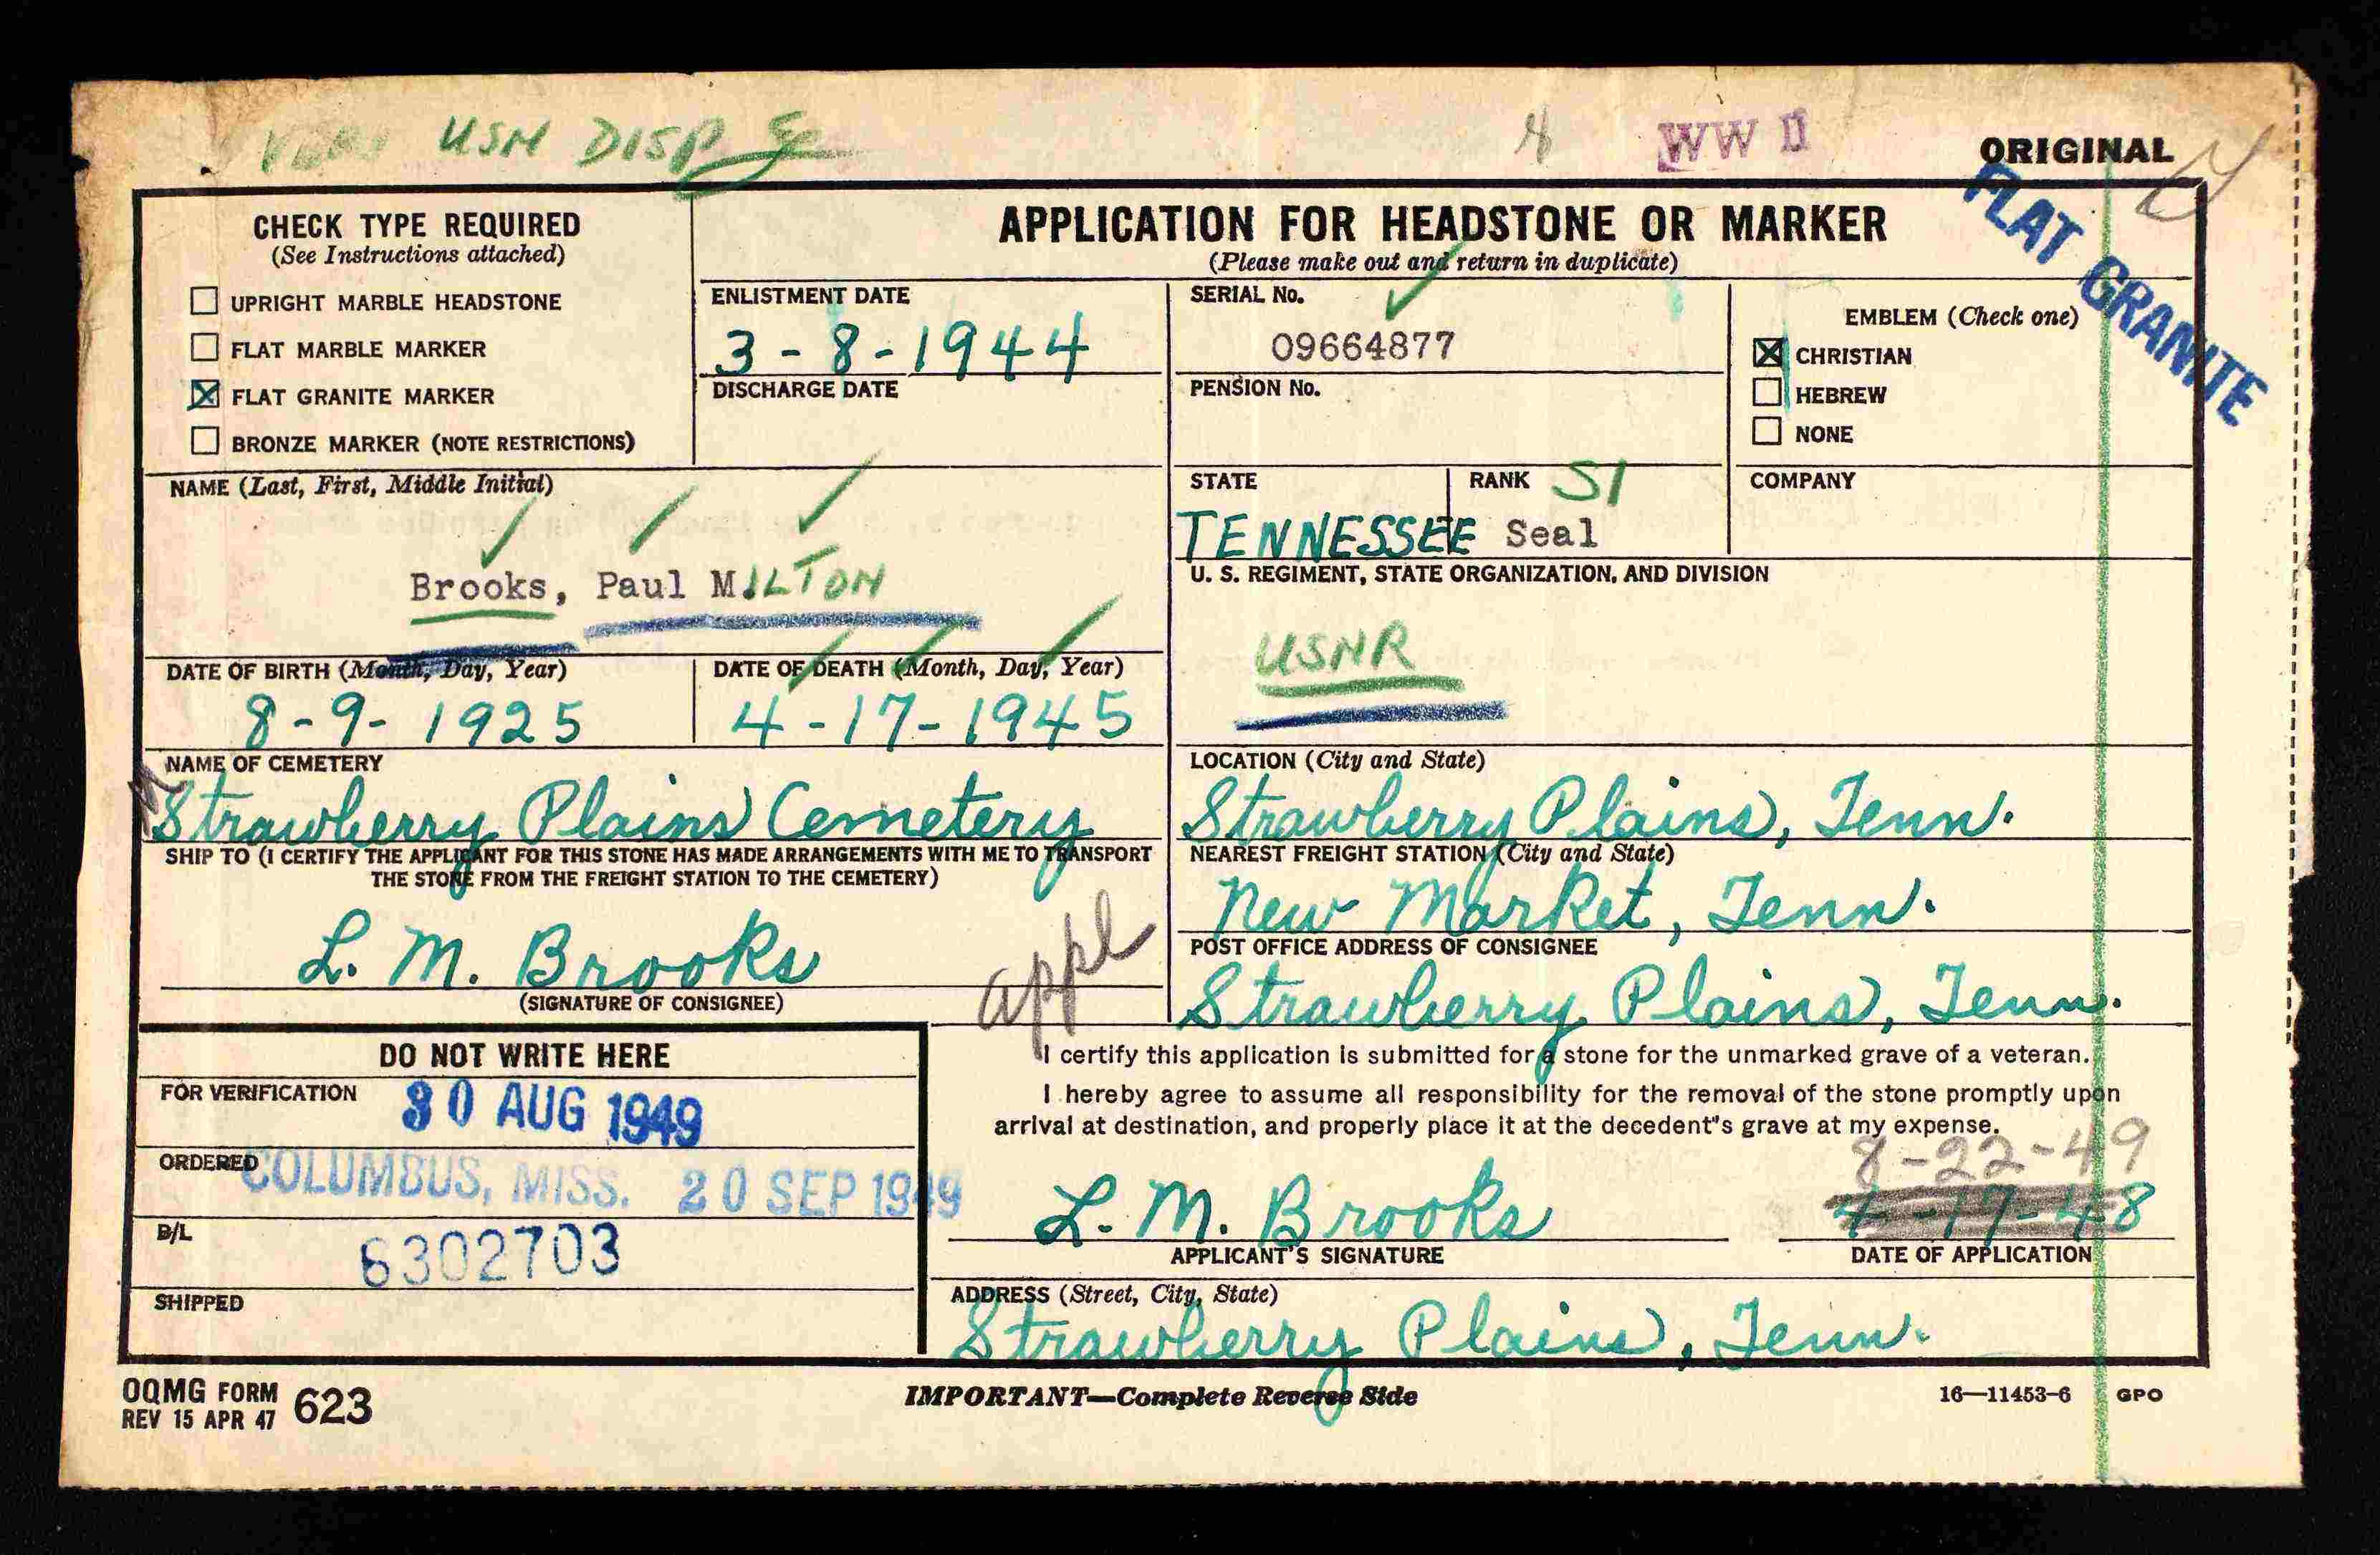 USN DISP
WW II
ORIGINAL
FLAT GRANITE
CHECK TYPE REQUIRED
(See Instructions attached)
UPRIGHT MARBLE HEADSTONE
FLAT MARBLE MARKER
FLAT GRANITE MARKER
BRONZE MARKER (NOTE RESTRICTIONS)
APPLICATION FOR HEADSTONE OR MARKER
(Please make out and return in duplicate)
ENLISTMENT DATE
3-8-1944
DISCHARGE DATE
SERIAL No.
09664877
PENSION No.
EMBLEM (Check one)
CHRISTIAN
HEBREW
NONE
NAME (Last, First, Middle Initial)
Brooks, Paul MILTON
STATE
TENNESSEE
RANK S1
Seal
COMPANY
U. S. REGIMENT, STATE ORGANIZATION, AND DIVISION
USNR
DATE OF BIRTH (Month, Day, Year)
8-9-1925
DATE OF DEATH (Month, Day, Year)
4-17-1945
NAME OF CEMETERY
Strawberry Plains Cemetery
LOCATION (City and State)
Strawberry Plains, Tenn.
SHIP TO (I CERTIFY THE APPLICANT FOR THIS STONE HAS MADE ARRANGEMENTS WITH ME TO TRANSPORT
THE STONE FROM THE FREIGHT STATION TO THE CEMETERY)
L. M. Brooks
(SIGNATURE OF CONSIGNEE)
appl
NEAREST FREIGHT STATION (City and State)
New Market, Tenn.
POST OFFICE ADDRESS OF CONSIGNEE
Strawberry Plains, Tenn.
DO NOT WRITE HERE
FOR VERIFICATION
30 AUG 1949
ORDERED
COLUMBUS, MISS. 20 SEP 1949
B/L
6302703
SHIPPED
I certify this application is submitted for a stone for the unmarked grave of a veteran.
I hereby agree to assume all responsibility for the removal of the stone promptly upon
arrival at destination, and properly place it at the decedent"s grave at my expense.
8-22-49
L. M. Brooks
4-17-48
APPLICANT'S SIGNATURE
DATE OF APPLICATION
ADDRESS (Street, City, State)
Strawberry Plains, Tenn.
OQMG FORM 623
REV 15 APR 47
IMPORTANT—Complete Reverse Side
16—11453-6 GPO